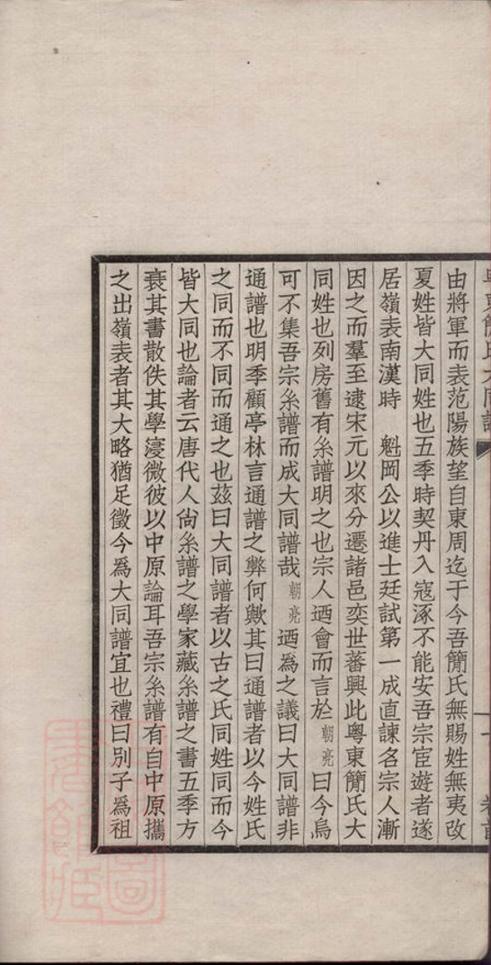 粵東簡氏大同譜
卷首
由將軍而表范陽族望自東周迄于今吾簡氏無賜姓無夷改
夏姓皆大同姓也五季時契丹入寇涿不能安吾宗宦遊者遂
居嶺表南漢時 魁岡公以進士廷試第一成直諫名宗人漸
因之而羣至逮宋元以來分遷諸邑奕世蕃興此粵東簡氏大
同姓也列房舊有糸譜明之也宗人迺會而言於朝亮曰今烏
可不集吾宗糸譜而成大同譜哉朝亮迺爲之議曰大同譜非
通譜也明季顧亭林言通譜之弊何歟其曰通譜者以今姓氏
之同而不同而通之也茲曰大同譜者以古之氏同姓同而今
皆大同也論者云唐代人尙糸譜之學家藏糸譜之書五季方
衰其書散佚其學寖微彼以中原論耳吾宗糸譜有自中原攜
之出嶺表者其大略猶足徵今爲大同譜宜也禮曰別子爲祖